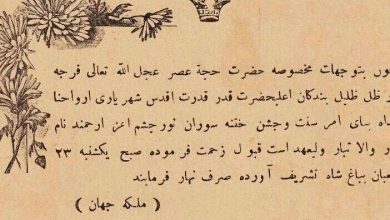 ون بتوجهات مخصوصه حضرت حجة عصر عجل الله تعالی فرجه
ر ظل ظلیل بندکان اعلیحضرت قدر قدرت اقدس شهریاری ارواحنا
اه بنای امر سنت وجشن ختنه سوران نورچشم اعز ارجمند نام
ر والا تبار ولیعهد است قبول زحمت فرموده صبح یکشنبه ۲۳
عبان بباغ شاه تشریف آورده صرف نهار فرمایند
( ملکه جهان )